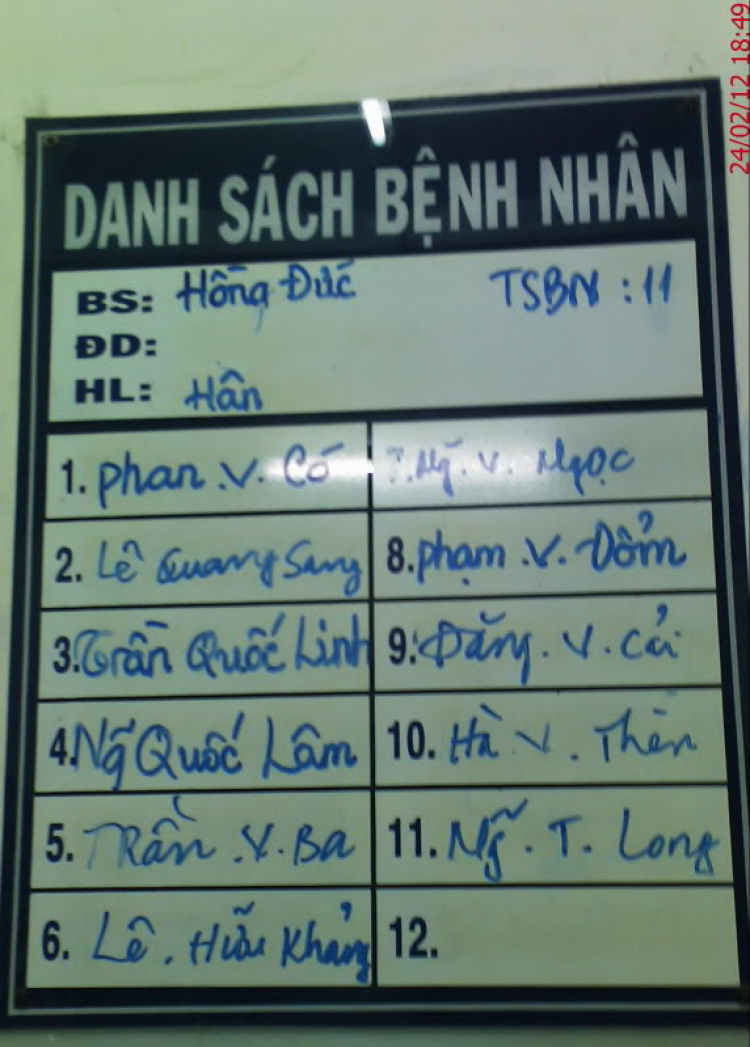 24/02/12 18:49
DANH SÁCH BỆNH NHÂN
BS: Hồng Đức TSBN : 11
ĐD:
HL: Hân
1. Phan .V. Có
2. Lê Quang Sang
3. Trần Quốc Linh
4. Ng̃ Quốc Lâm
5. Trần .V. Ba
6. Lê . Hữu Khảng
7. Ng̃. V. Ngọc
8. Phạm .V. Dổm
9. Đăng. V. Cải
10. Hà V. Thên
11. Ng̃. T. Long
12.